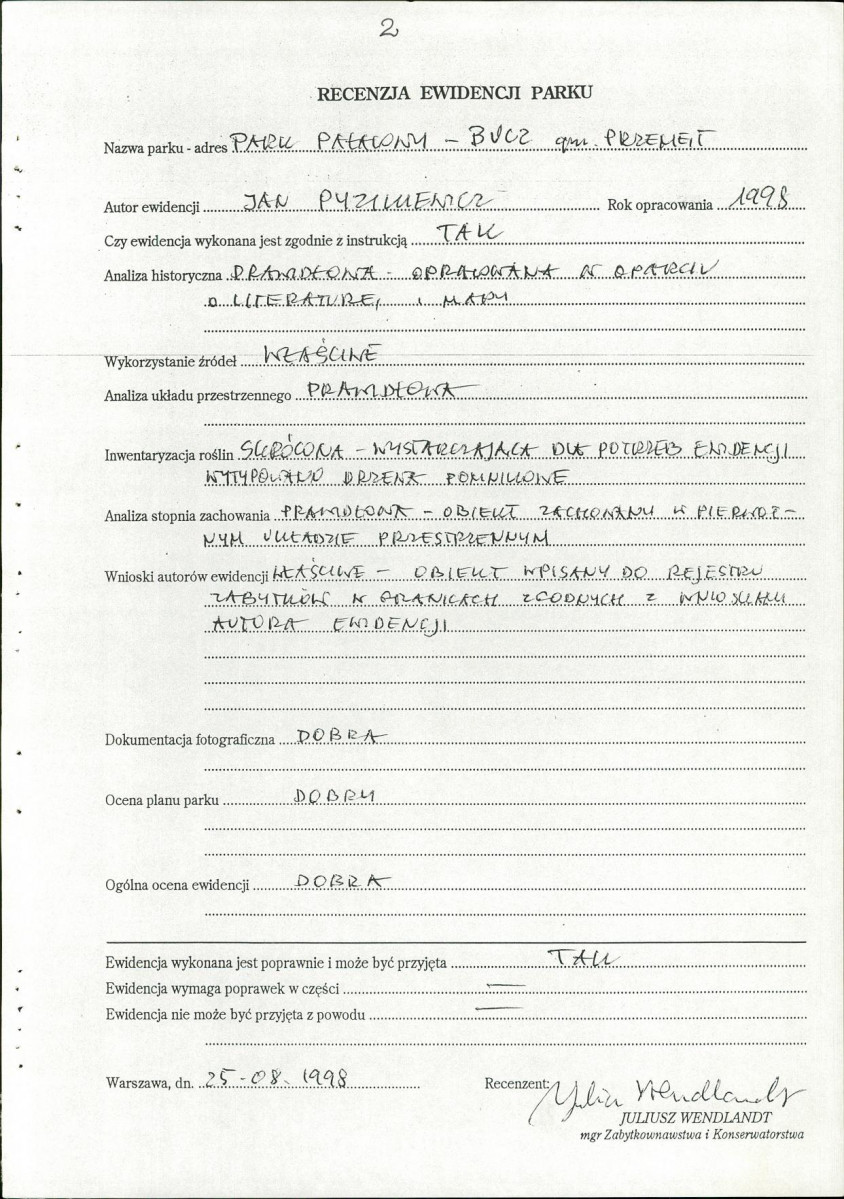 2
RECENZJA EWIDENCJI PARKU
Nazwa parku - adres PARK PAŁACOWY - BUCZ gm. PRZEMĘT
Autor ewidencji JAN PYZIKIEWICZ Rok opracowania 1998
Czy ewidencja wykonana jest zgodnie z instrukcją TAK
Analiza historyczna PRAWIDŁOWA - OPRACOWANA W OPARCIU
O LITERATURĘ, I MAPY
Wykorzystanie źródeł WŁAŚCIWE
Analiza układu przestrzennego PRAWIDŁOWA
Inwentaryzacja roślin SKRÓCONA - WYSTARCZAJĄCA DLA POTRZEB EWIDENCJI
WYTYPOWANO DRZEWA POMNIKOWE
Analiza stopnia zachowania PRAWIDŁOWA - OBIEKT ZACHOWANY W PIERWOT-
NYM UKŁADZIE PRZESTRZENNYM
Wnioski autorów ewidencji WŁAŚCIWE - OBIEKT WPISANY DO REJESTRU
ZABYTKÓW W GRANICACH ZGODNYCH Z WNIOSKAMI
AUTORA EWIDENCJI
Dokumentacja fotograficzna DOBRA
Ocena planu parku DOBRY
Ogólna ocena ewidencji DOBRA
Ewidencja wykonana jest poprawnie i może być przyjęta TAK
Ewidencja wymaga poprawek w części —
Ewidencja nie może być przyjęta z powodu —
Warszawa, dn. 25-08-1998 Recenzent: Juliusz Wendlandt
JULIUSZ WENDLANDT
mgr Zabytkownawstwa i Konserwatorstwa